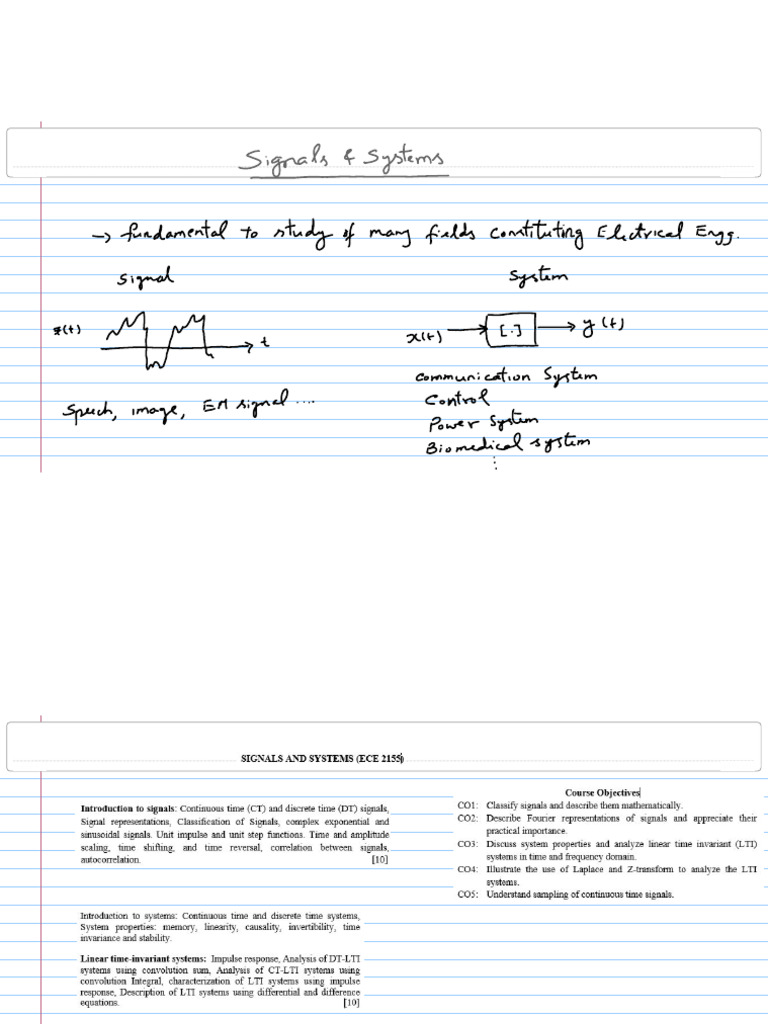 Signals & Systems
-> fundamental to study of many fields constituting Electrical Engg.
Signal
System
x(t)
t
x(t)
[.]
y(t)
Speech, image, EM signal ....
Communication System
Control
Power System
Biomedical system
SIGNALS AND SYSTEMS (ECE 2155)
Introduction to signals: Continuous time (CT) and discrete time (DT) signals,
Signal representations, Classification of Signals, complex exponential and
sinusoidal signals. Unit impulse and unit step functions. Time and amplitude
scaling, time shifting, and time reversal, correlation between signals,
autocorrelation. [10]
Introduction to systems: Continuous time and discrete time systems,
System properties: memory, linearity, causality, invertibility, time
invariance and stability.
Linear time-invariant systems: Impulse response, Analysis of DT-LTI
systems using convolution sum, Analysis of CT-LTI systems using
convolution Integral, characterization of LTI systems using impulse
response, Description of LTI systems using differential and difference
equations. [10]
Course Objectives
CO1: Classify signals and describe them mathematically.
CO2: Describe Fourier representations of signals and appreciate their
practical importance.
CO3: Discuss system properties and analyze linear time invariant (LTI)
systems in time and frequency domain.
CO4: Illustrate the use of Laplace and Z-transform to analyze the LTI
systems.
CO5: Understand sampling of continuous time signals.